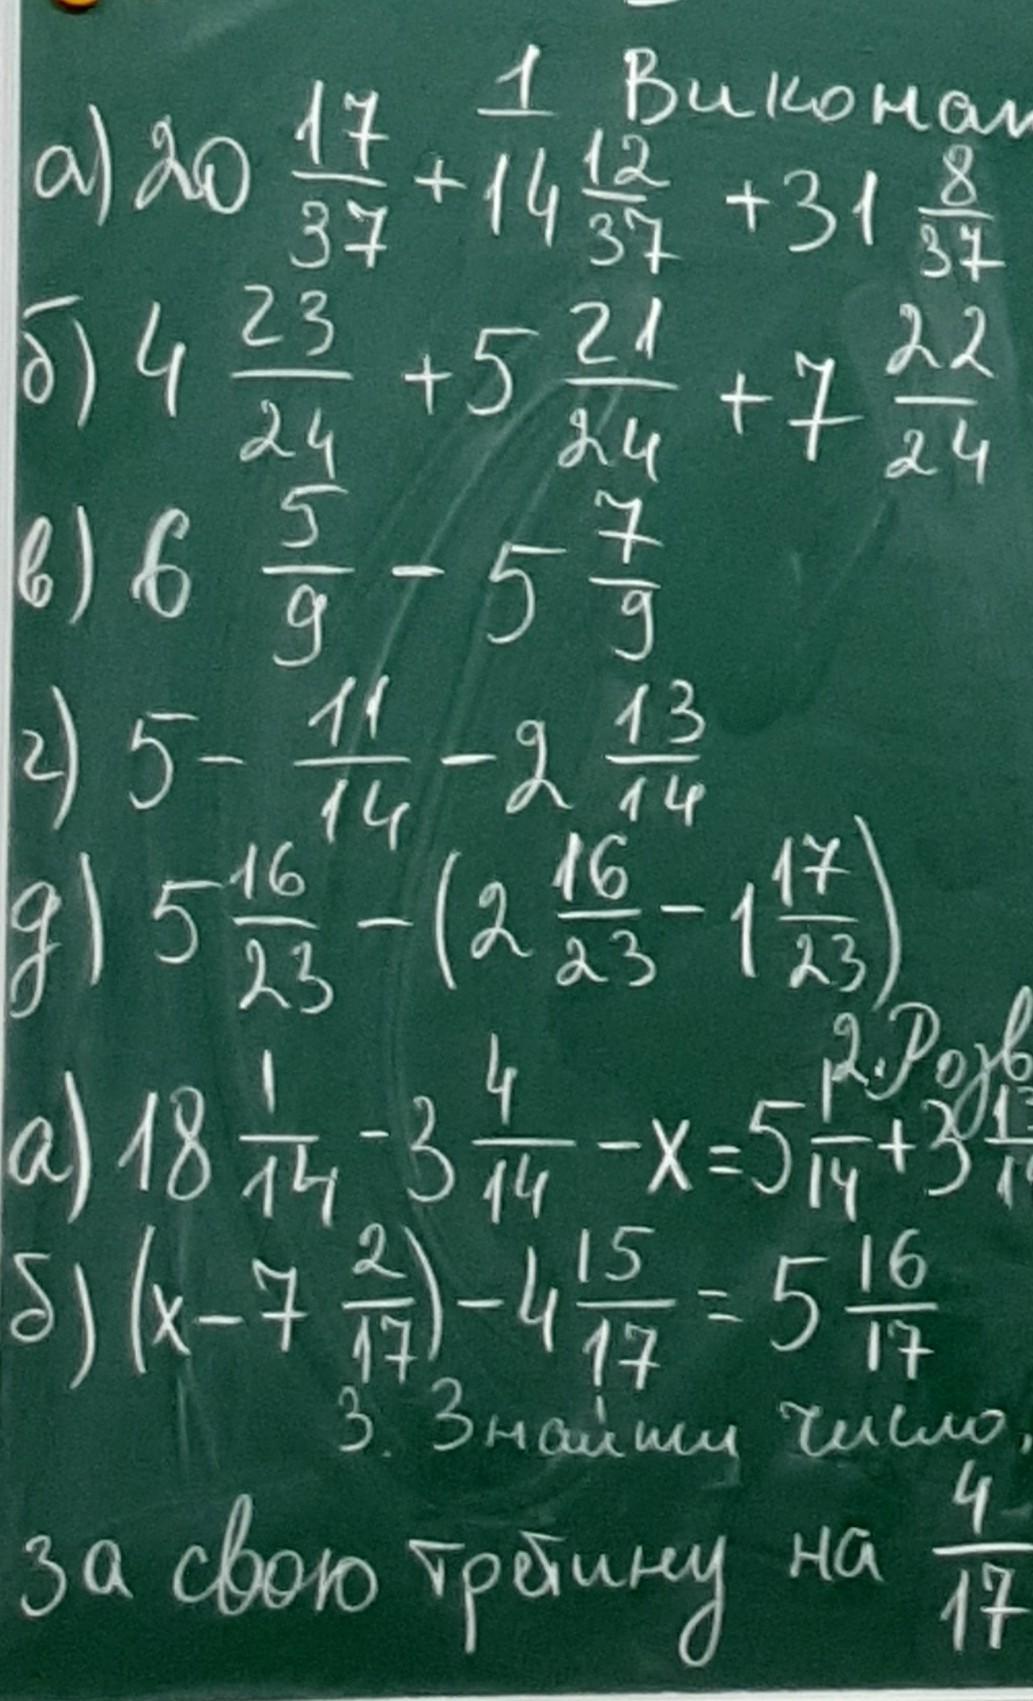 1 Виконан
а) 20 17/37 + 14 12/37 + 31 8/37
б) 4 23/24 + 5 21/24 + 7 22/24
в) 6 5/9 - 5 7/9
г) 5 - 11/14 - 2 13/14
д) 5 16/23 - (2 16/23 - 1 17/23)
2. Розв
а) 18 1/14 - 3 4/14 - x = 5 1/14 + 3
б) (x - 7 2/17) - 4 15/17 = 5 16/17
3. Знайти число,
за свою третину на 4/17